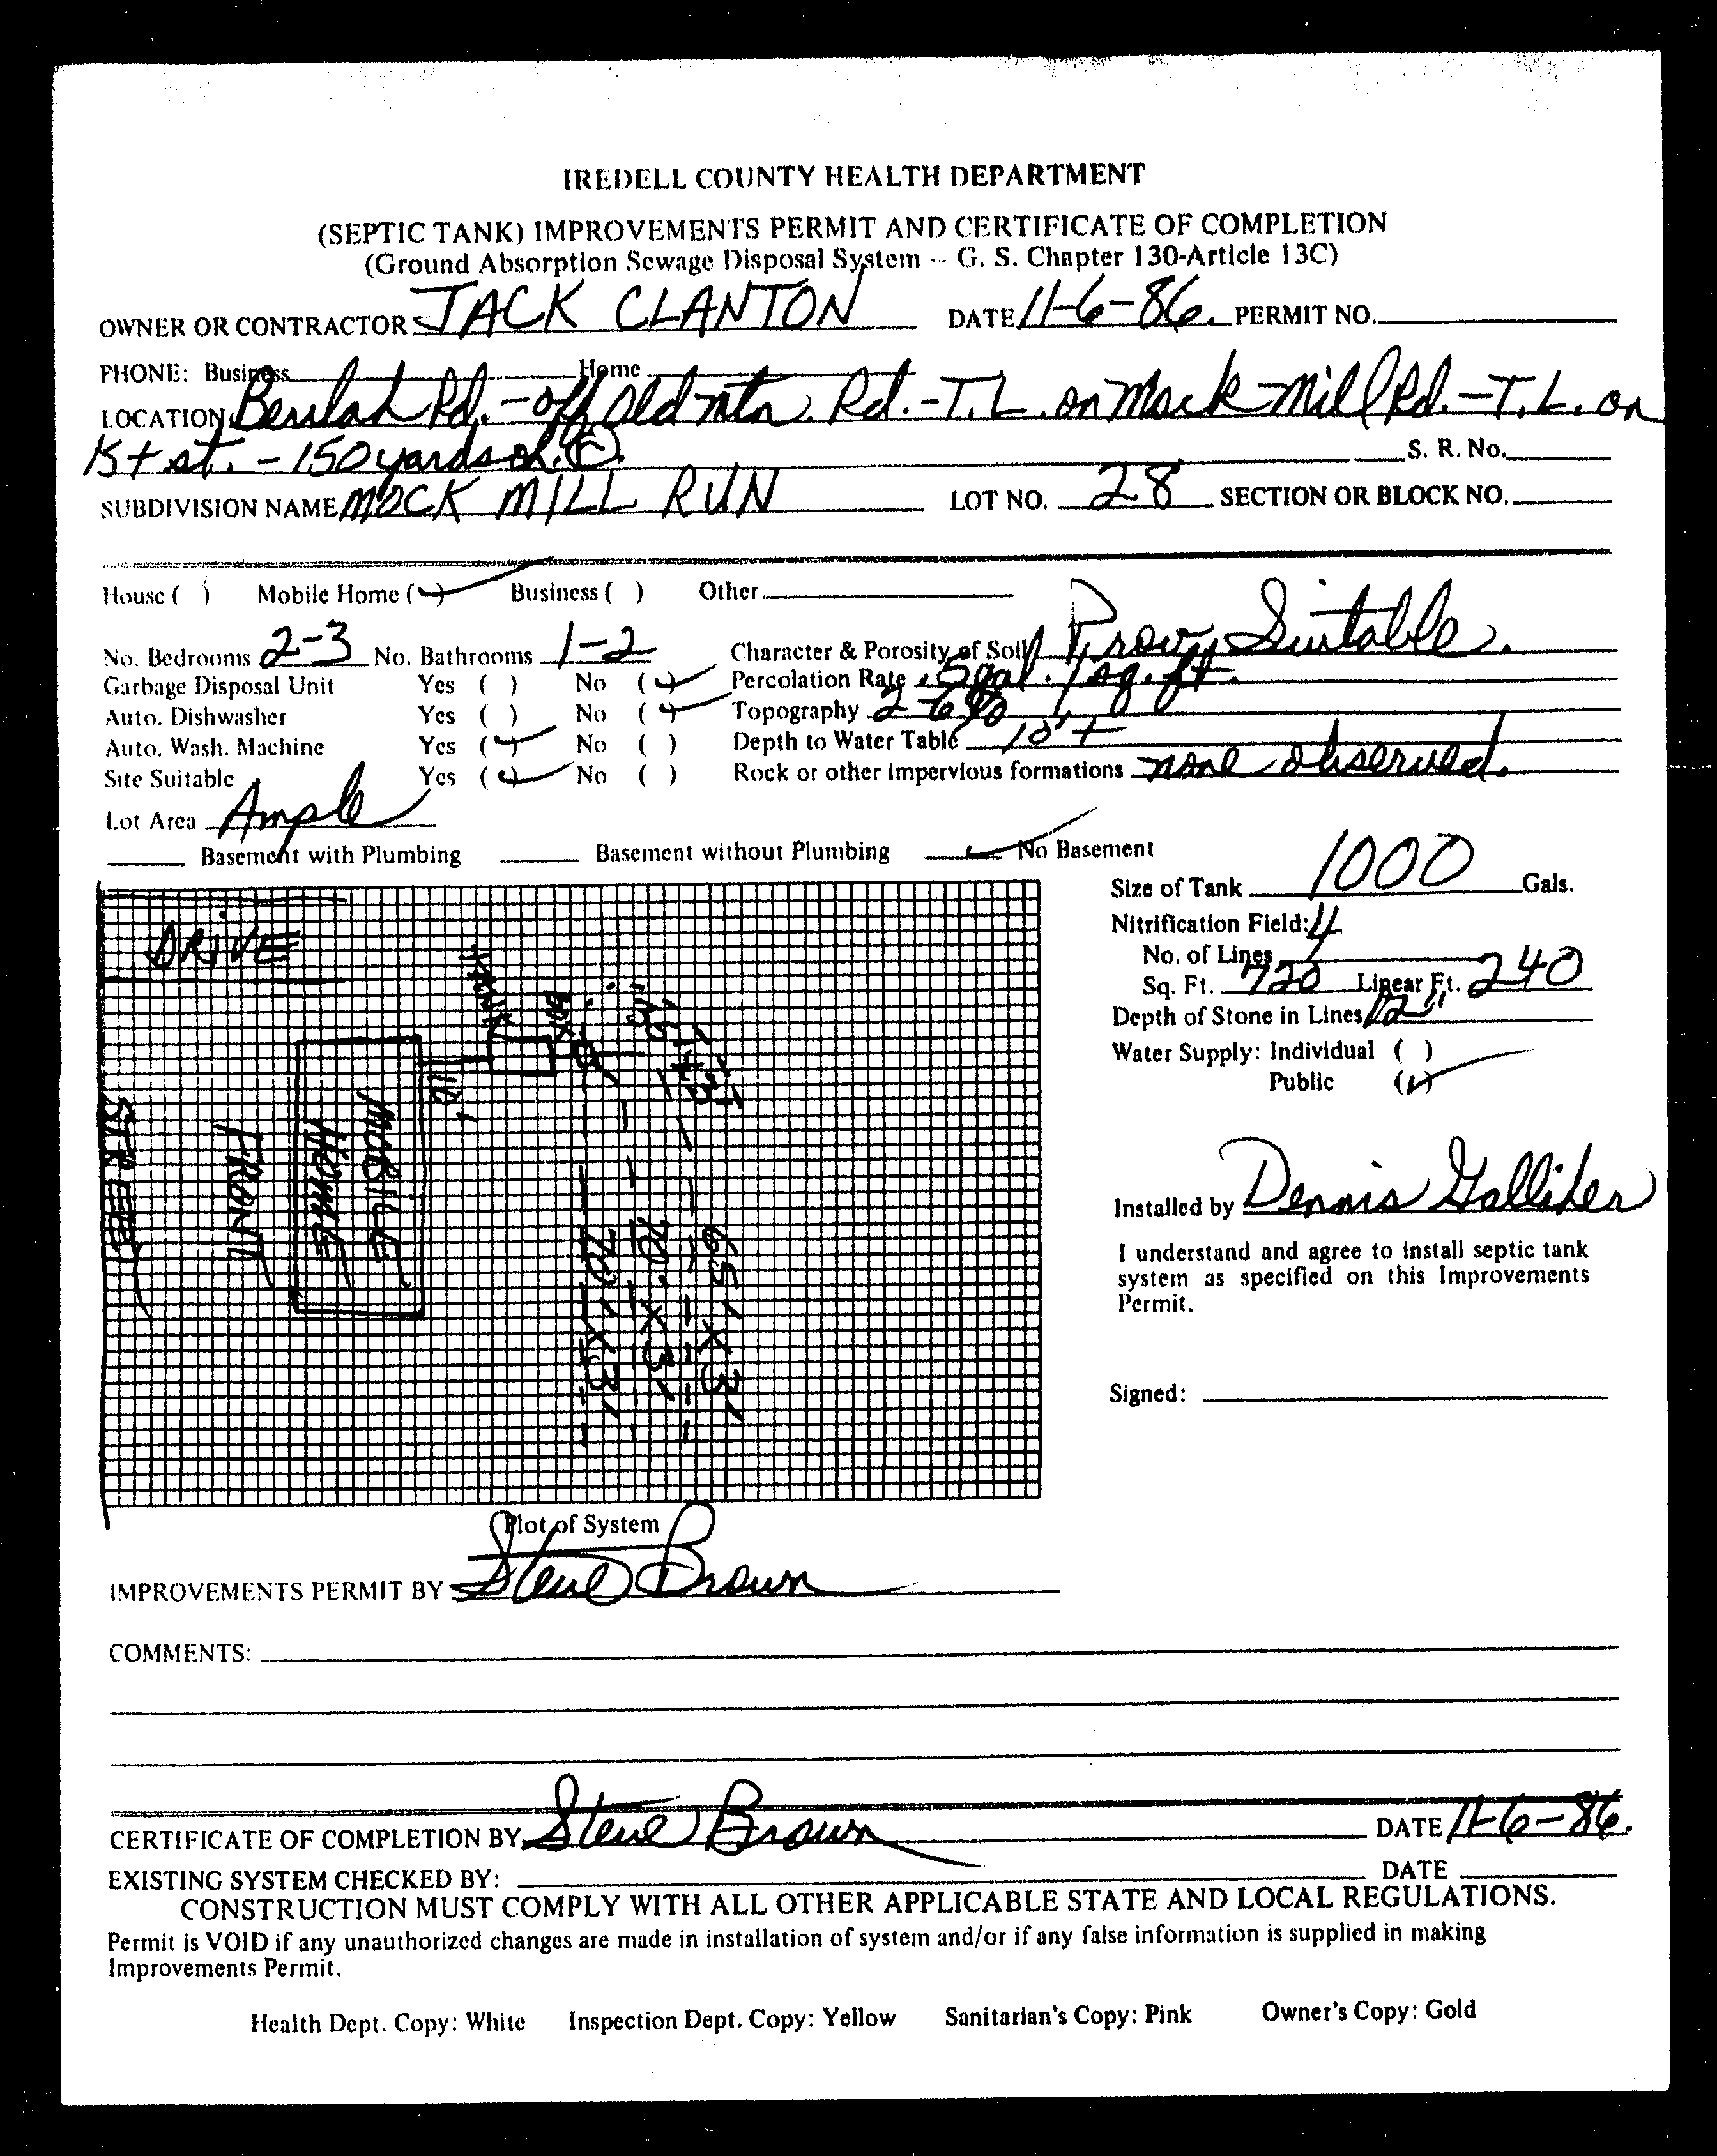 IREDELL COUNTY HEALTH DEPARTMENT
(SEPTIC TANK) IMPROVEMENTS PERMIT AND CERTIFICATE OF COMPLETION
(Ground Absorption Sewage Disposal System -- G. S. Chapter 130-Article 13C)
OWNER OR CONTRACTOR JACK CLANTON DATE 11-6-86. PERMIT NO.
PHONE: Business Home
LOCATION Beulah Rd. - off old mtn. Rd. - T.L. on Mock Mill Rd. - T.L. on
1st st. - 150 yards on
S. R. No.
SUBDIVISION NAME MOCK MILL RUN LOT NO. 28 SECTION OR BLOCK NO.
House ( ) Mobile Home (✓) Business ( ) Other
No. Bedrooms 2-3 No. Bathrooms 1-2 Character & Porosity of Soil Prov. Suitable.
Garbage Disposal Unit Yes ( ) No (✓) Percolation Rate .5 gal. / sq. ft.
Auto. Dishwasher Yes ( ) No (✓) Topography 2-6%
Auto. Wash. Machine Yes (✓) No ( ) Depth to Water Table 10'+
Site Suitable Yes (✓) No ( ) Rock or other impervious formations none observed.
Lot Area Ample
Basement with Plumbing Basement without Plumbing ✓ No Basement
Size of Tank 1000 Gals.
Nitrification Field: 4
No. of Lines
Sq. Ft. 720 Linear Ft. 240
Depth of Stone in Lines 12"
Water Supply: Individual ( )
Public (✓)
Installed by Dennis Galliher
I understand and agree to install septic tank
system as specified on this Improvements
Permit.
Signed:
DRIVE
STREET
FRONT
MOBILE
HOME
10'
TANK
BOX
70' X 3'
70' X 3'
65' X 3'
Plot of System
IMPROVEMENTS PERMIT BY Steve Brown
COMMENTS:
CERTIFICATE OF COMPLETION BY Steve Brown DATE 11-6-86.
EXISTING SYSTEM CHECKED BY: DATE
CONSTRUCTION MUST COMPLY WITH ALL OTHER APPLICABLE STATE AND LOCAL REGULATIONS.
Permit is VOID if any unauthorized changes are made in installation of system and/or if any false information is supplied in making
Improvements Permit.
Health Dept. Copy: White Inspection Dept. Copy: Yellow Sanitarian's Copy: Pink Owner's Copy: Gold